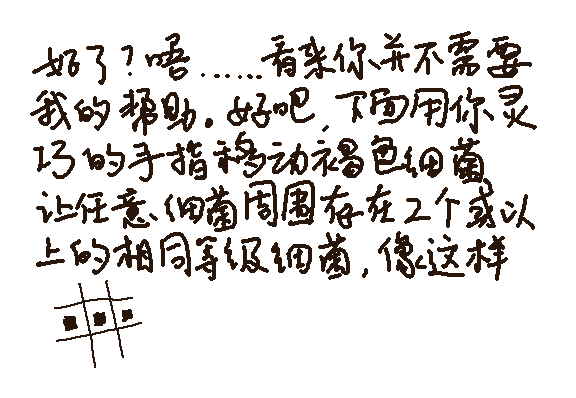 好了？唔……看来你并不需要
我的帮助。好吧，下面用你灵
巧的手指移动褐色细菌
让任意细菌周围存在2个或以
上的相同等级细菌，像这样